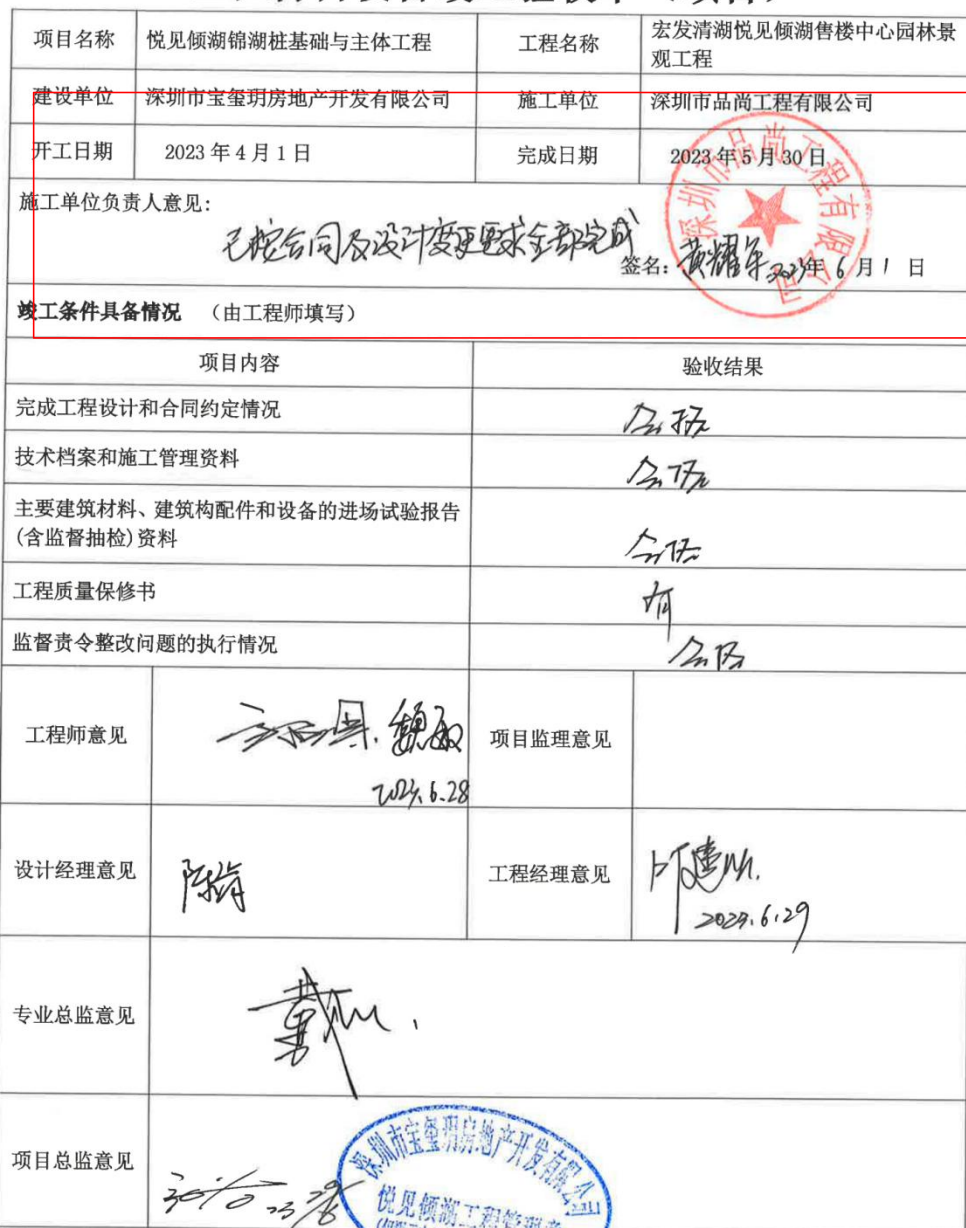 项目名称 悦见倾湖锦湖桩基础与主体工程 工程名称 宏发清湖悦见倾湖售楼中心园林景
观工程
建设单位 深圳市宝玺玥房地产开发有限公司 施工单位 深圳市品尚工程有限公司
开工日期 2023年4月1日 完成日期 2023年5月30日
深圳市品尚工程有限公司
施工单位负责人意见:
已按合同及设计变更要求全部完成
签名: 黄耀军 2023年6月1日
竣工条件具备情况 (由工程师填写)
项目内容 验收结果
完成工程设计和合同约定情况 合格
技术档案和施工管理资料 合格
主要建筑材料、建筑构配件和设备的进场试验报告
(含监督抽检)资料 合格
工程质量保修书 有
监督责令整改问题的执行情况 合格
工程师意见 魏敏 项目监理意见
2023.6.28
设计经理意见 陈 工程经理意见
2023.6.29
专业总监意见 戴
项目总监意见
深圳市宝玺玥房地产开发有限公司
悦见倾湖工程管理章